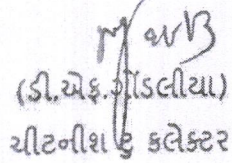 (ડી.એફ.ગોંડલીયા)
ચીટનીશ ટુ કલેક્ટર